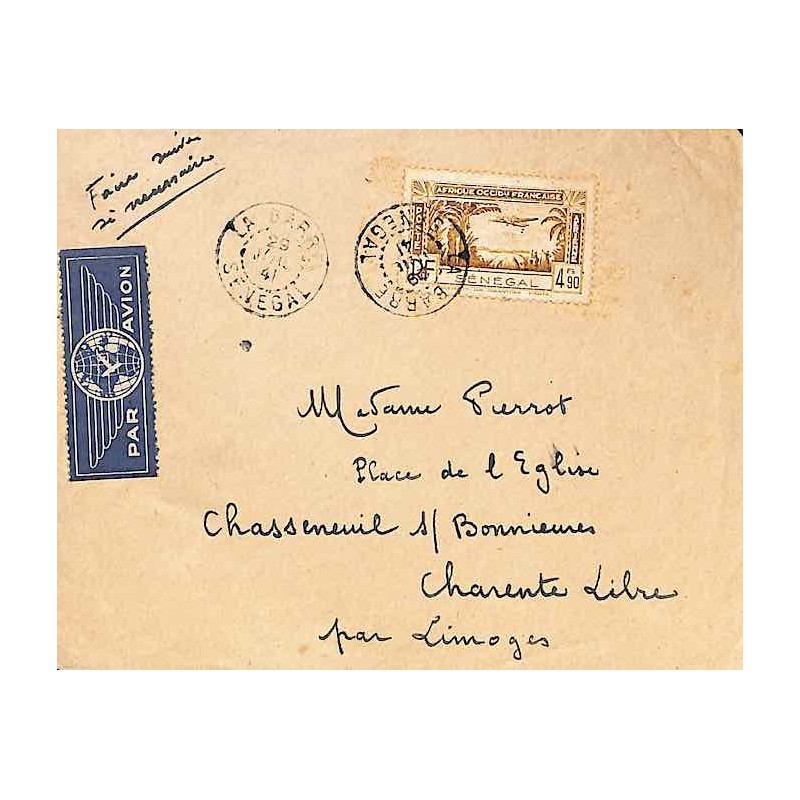 Faire suivre
si nécessaire
LA BARRE
29
41
SENEGAL
LA BARRE
SENEGAL
AFRIQUE OCCIDle FRANÇAISE
POSTE AERIENNE
RF
SENEGAL
4F90
PAR AVION
Madame Pierrot
Place de l'Eglise
Chasseneuil s/ Bonnieures
Charente Libre
par Limoges